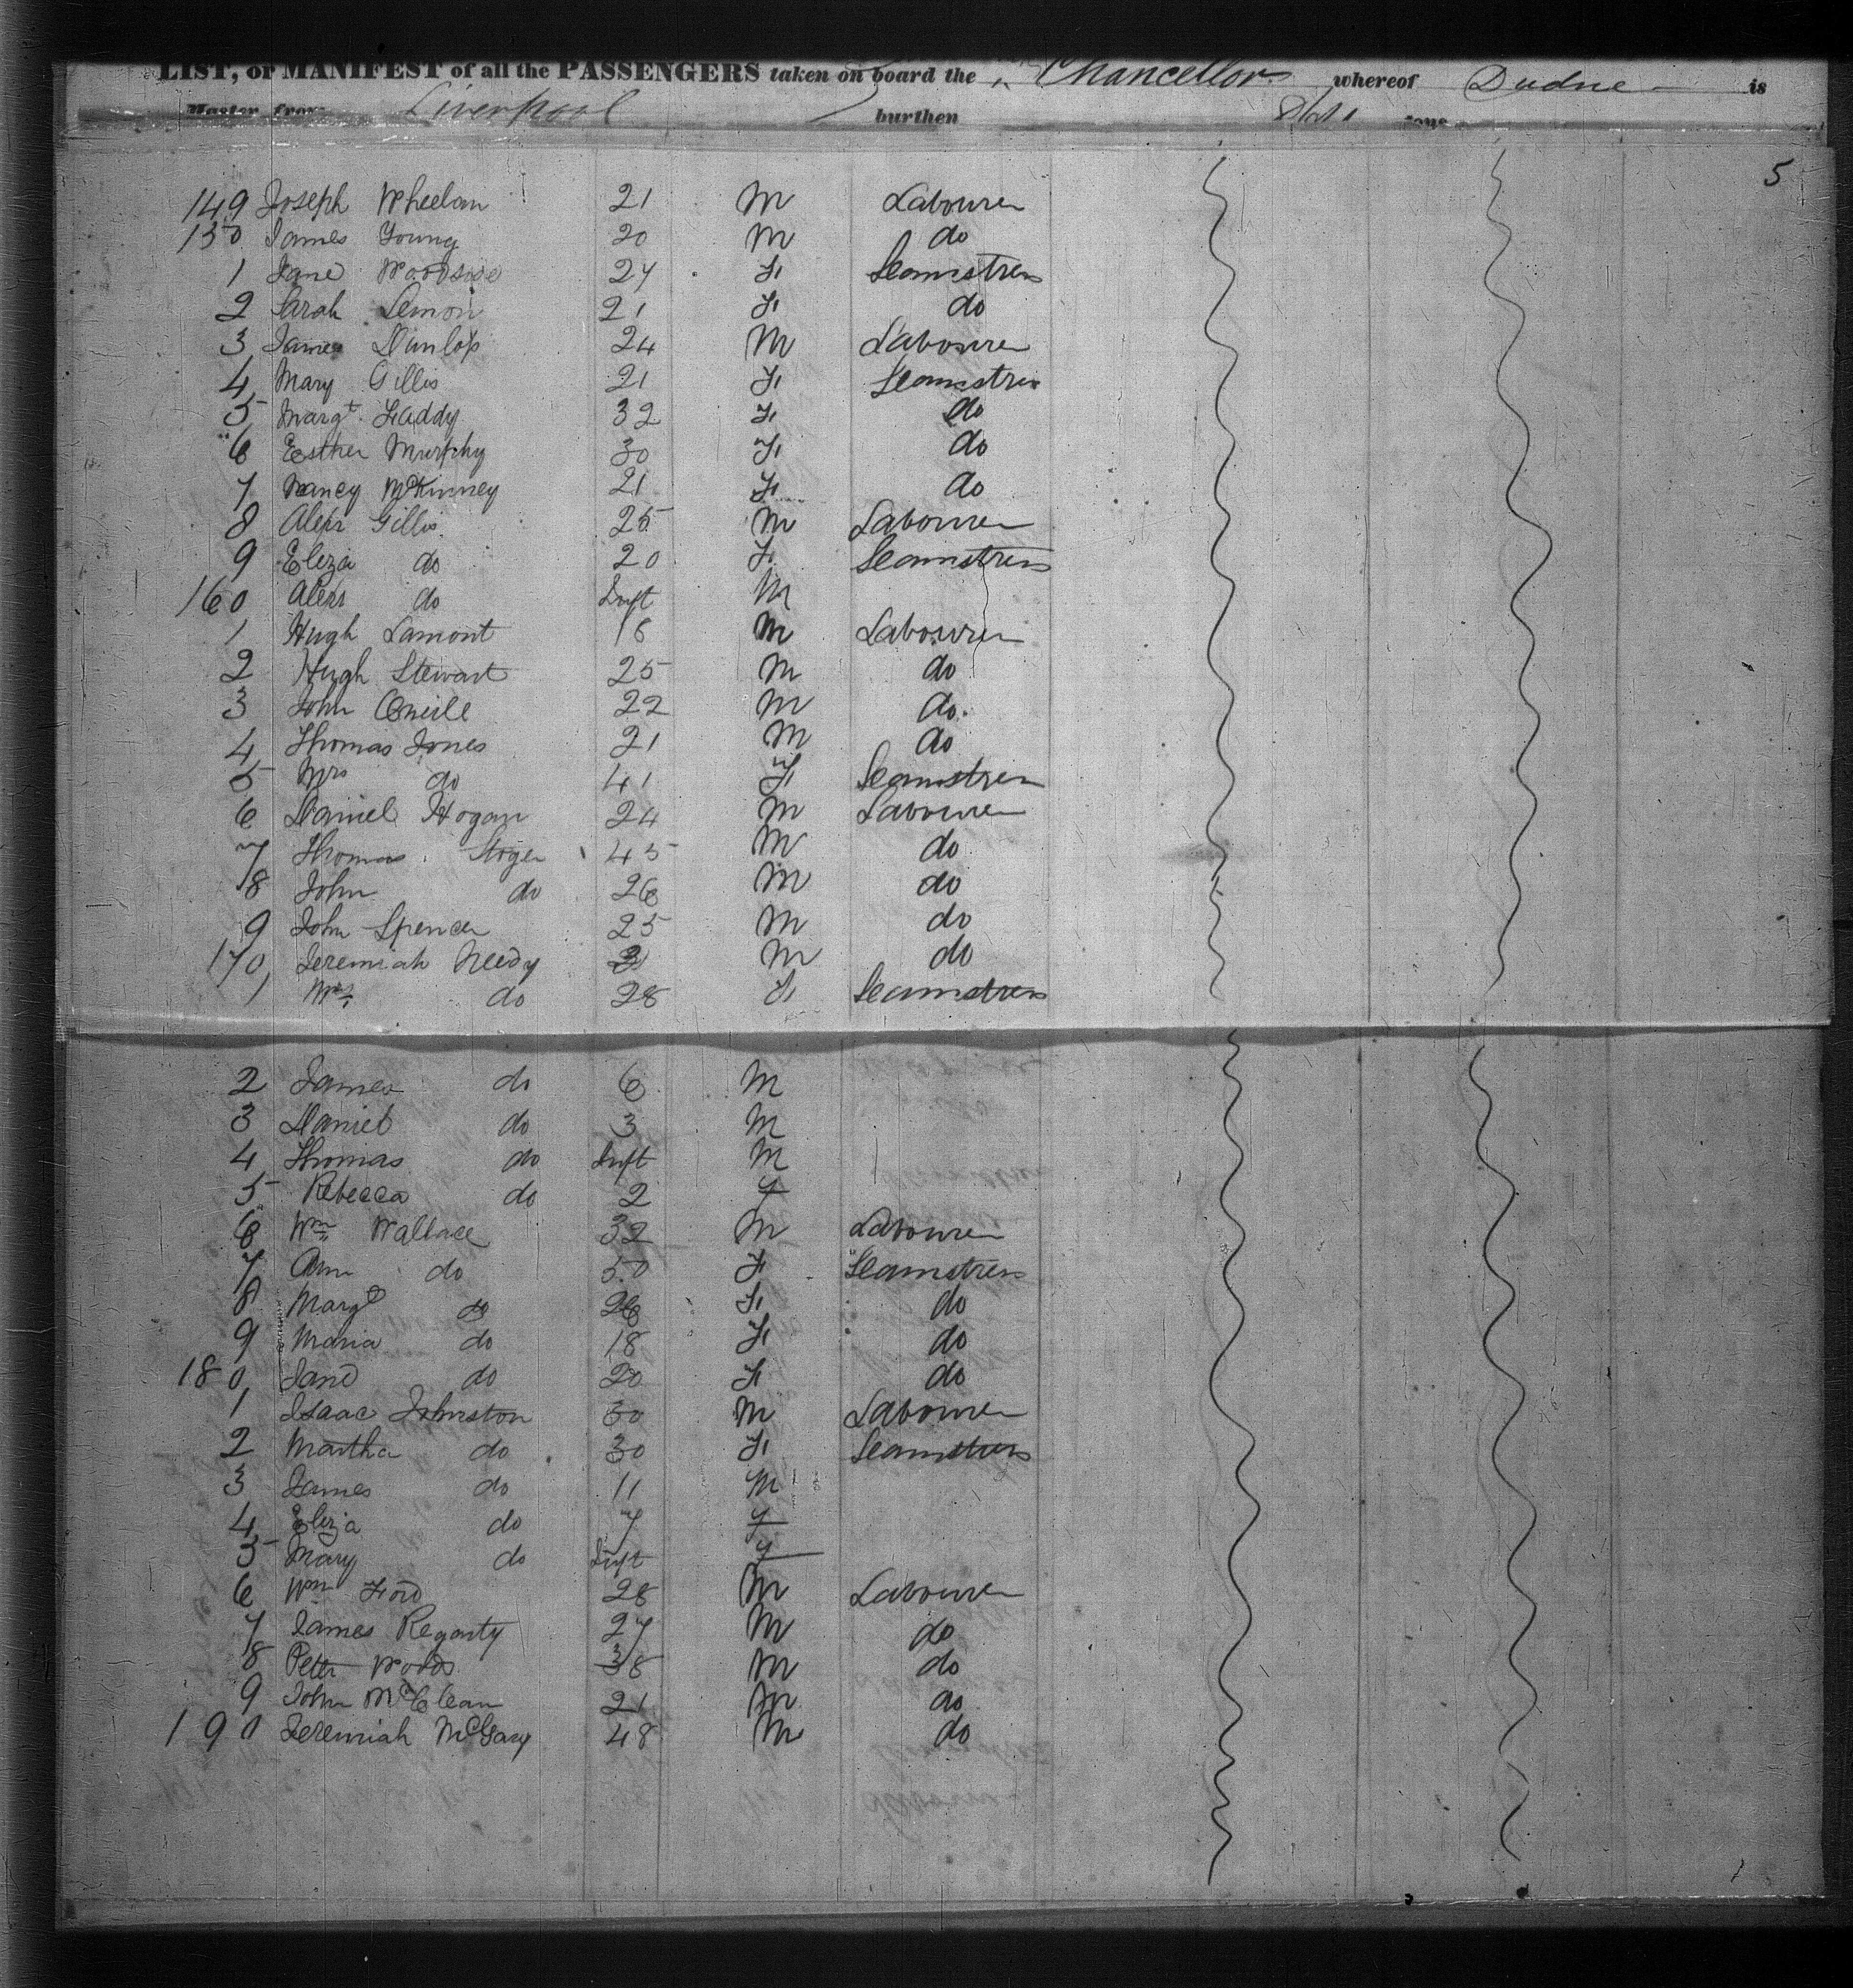 LIST, or MANIFEST of all the PASSENGERS taken on board the Chancellor whereof is
Master from Liverpool burthen tons
5
149 Joseph Wheelan 21 M Labourer
150 James Young 20 M do
1 Jane Woodside 27 F Seamstress
2 Sarah Lemon 21 F do
3 James Dunlop 24 M Labourer
4 Mary Gillis 21 F Seamstress
5 Margt Faddy 32 F do
6 Esther Murphy 30 F do
7 Nancy McKinney 21 F do
8 Alexr Gillis 25 M Labourer
9 Eliza do 20 F Seamstress
160 Alexr do Inft M
1 Hugh Lamont 18 M Labourer
2 Hugh Stewart 25 M do
3 John Oneile 22 M do
4 Thomas Jones 21 M do
5 Mrs do 41 F Seamstress
6 Daniel Hogan 24 M Labourer
7 Thomas 45 M do
8 John do 26 M do
9 John Spencer 25 M do
170 Jeremiah Needy M do
1 Mrs do 28 F Seamstress
2 James do 6 M
3 Daniel do 3 M
4 Thomas do Inft M
5 Rebecca do 2 F
6 Wm Wallace 32 M Labourer
7 Ann do 50 F Seamstress
8 Margt do 26 F do
9 Maria do 18 F do
180 Jane do 20 F do
1 Isaac Johnston 30 M Labourer
2 Martha do 30 F Seamstress
3 James do 11 M
4 Eliza do 7 F
5 Mary do Inft F
6 Wm Ford 28 M Labourer
7 James Regarty 27 M do
8 Peter Woods 38 M do
9 John McClean 21 M do
190 Jeremiah McGary 48 M do